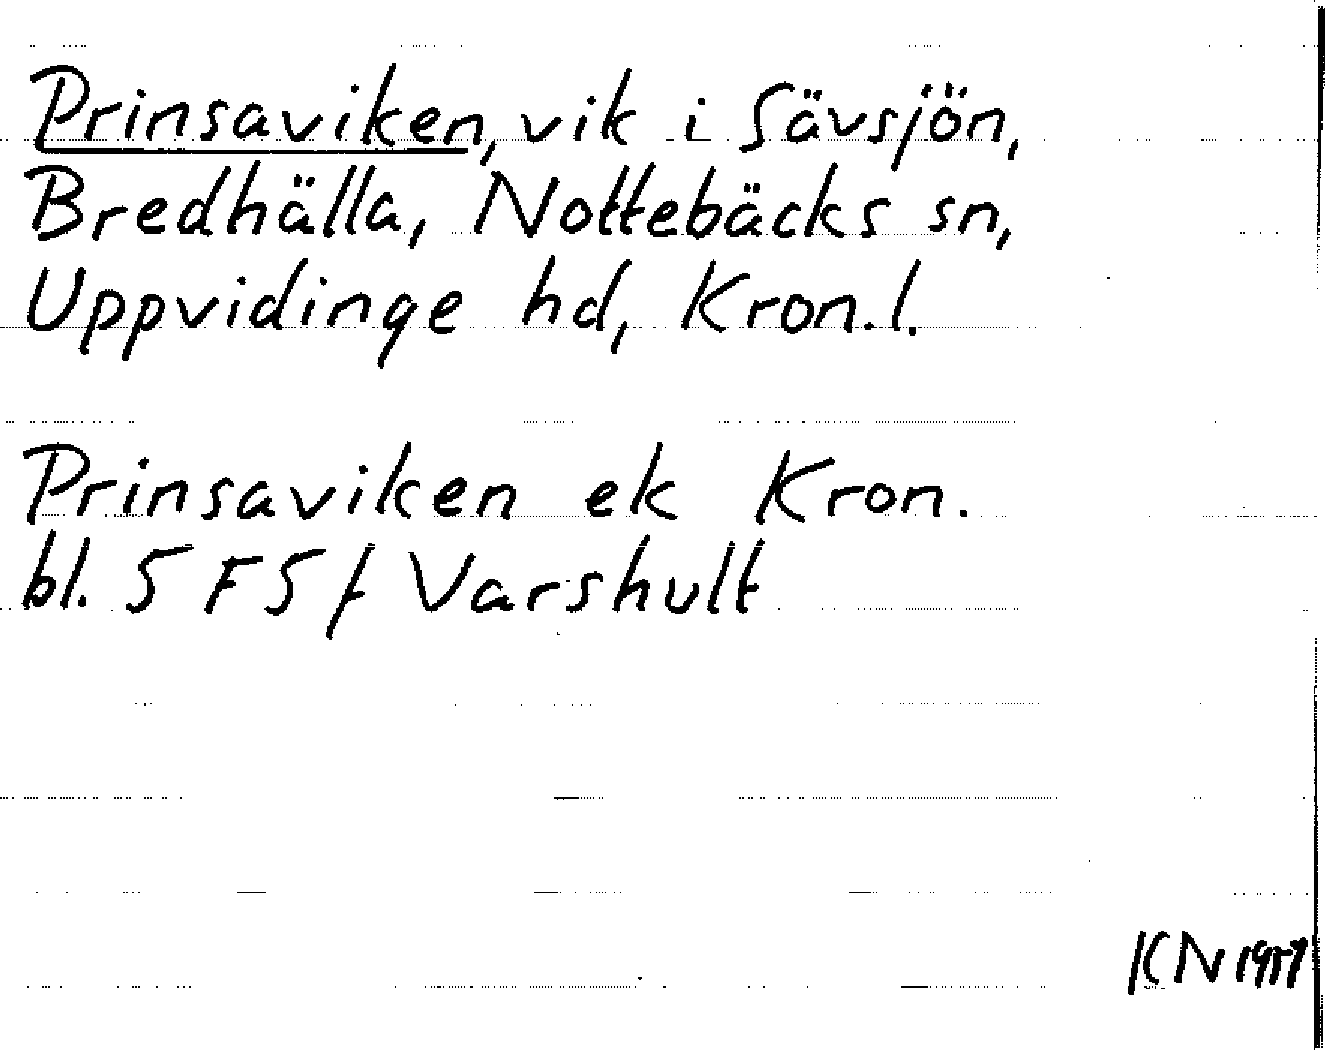 Prinsaviken, vik i Sävsjön,
Bredhälla, Nottebäcks sn,
Uppvidinge hd, Kron.l.
Prinsaviken ek Kron.
bl. 5 F 5 f Varshult
KN